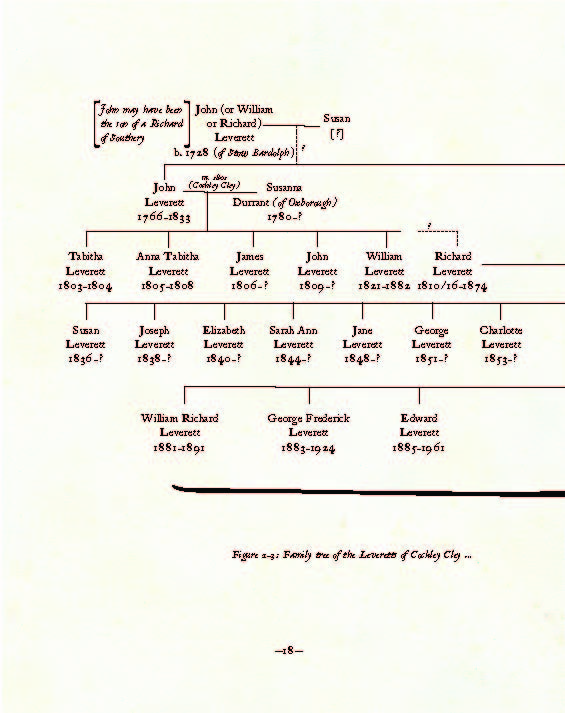 John may have been
the son of a Richard
of Southery
John (or William
or Richard)
Leverett
b. 1728 (of Stow Bardolph)
?
Susan
[?]
m. 1801
(Cockley Cley)
John
Leverett
1766-1833
Susanna
Durrant (of Oxborough)
1780-?
?
Tabitha
Leverett
1803-1804
Anna Tabitha
Leverett
1805-1808
James
Leverett
1806-?
John
Leverett
1809-?
William
Leverett
1821-1882
Richard
Leverett
1810/16-1874
Susan
Leverett
1836-?
Joseph
Leverett
1838-?
Elizabeth
Leverett
1840-?
Sarah Ann
Leverett
1844-?
Jane
Leverett
1848-?
George
Leverett
1851-?
Charlotte
Leverett
1853-?
William Richard
Leverett
1881-1891
George Frederick
Leverett
1883-1924
Edward
Leverett
1885-1961
Figure 2-3: Family tree of the Leveretts of Cockley Cley ...
—18—